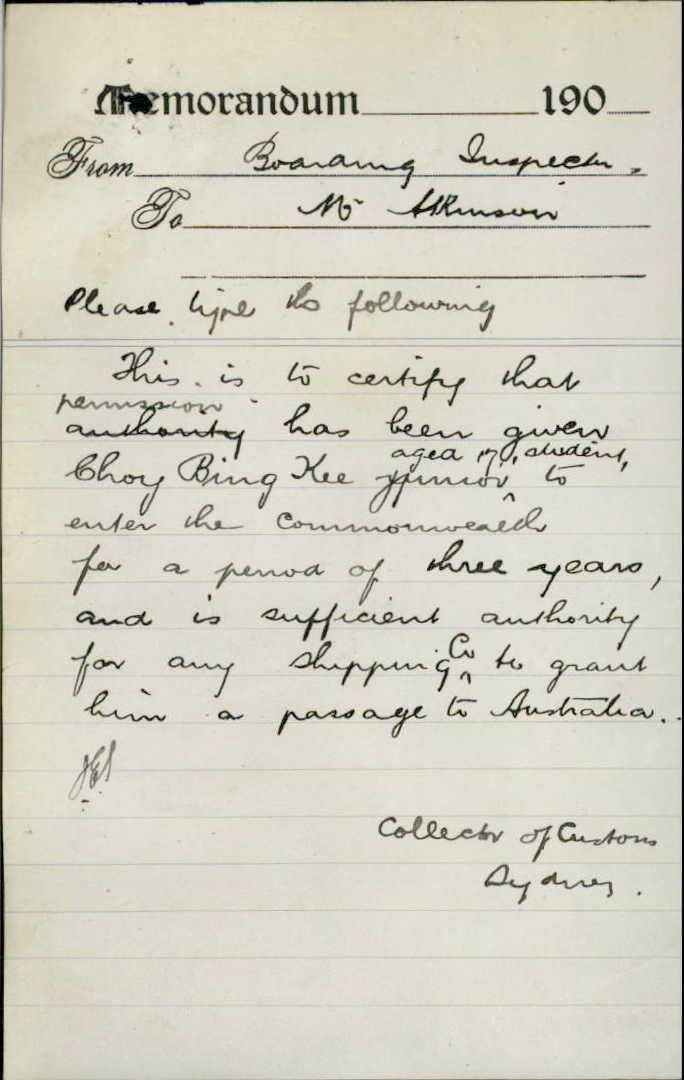 Memorandum 190
From Boarding Inspector.
To Mr Atkinson
Please type the following
This is to certify that
permission
authority has been given
aged 17, student,
Choy Bing Kee junior to
enter the Commonwealth
for a period of three years,
and is sufficient authority
for any shipping Co to grant
him a passage to Australia.
Collector of Customs
Sydney.